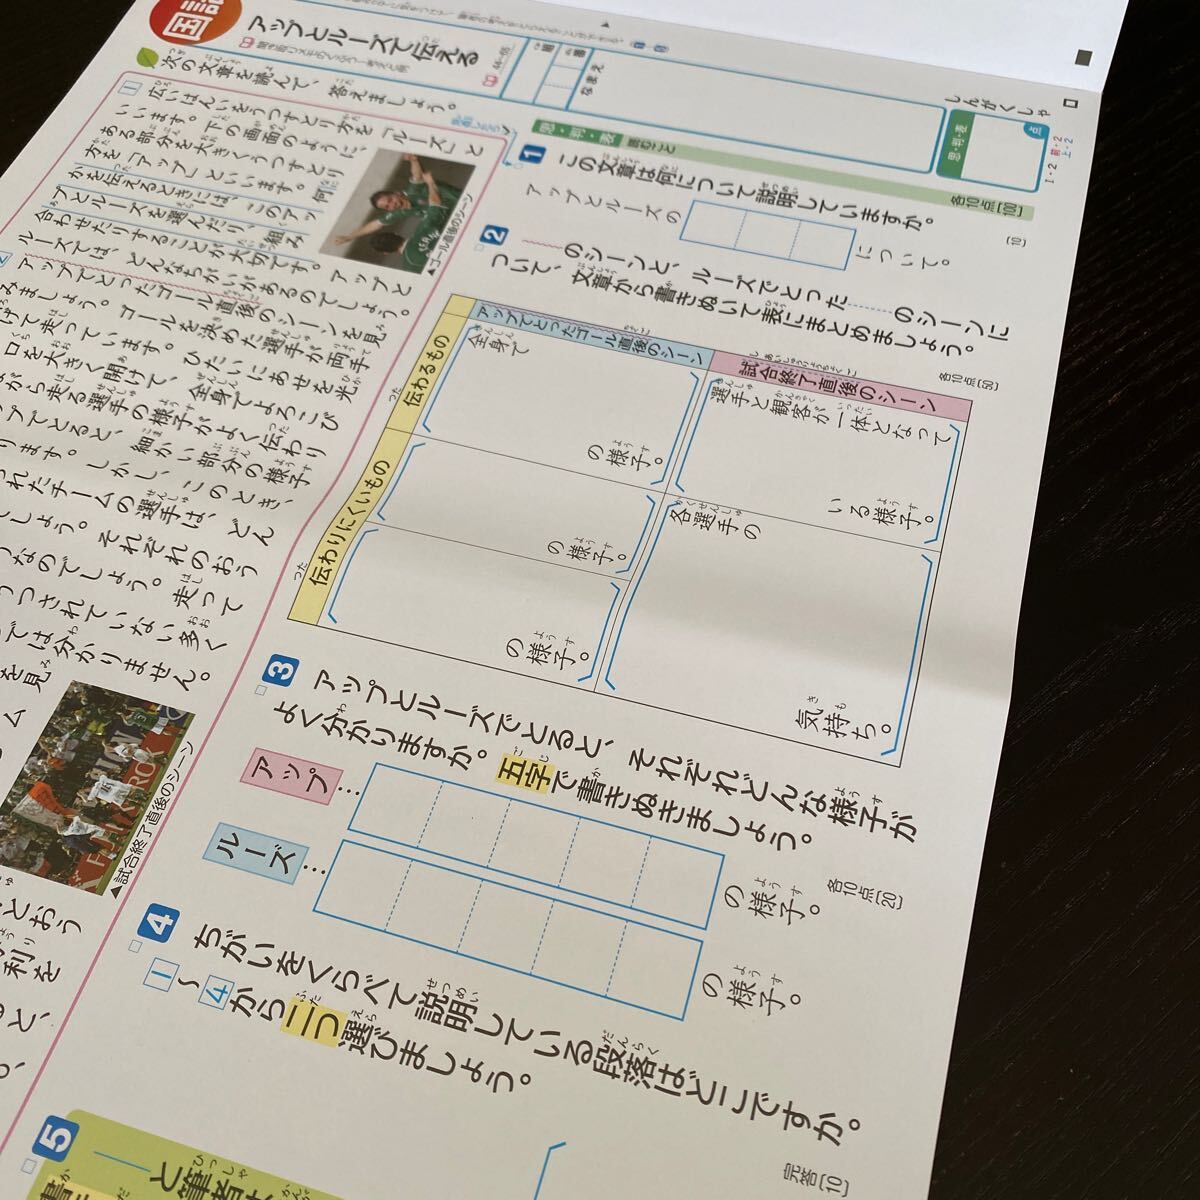 アップとルーズで伝える
44～55
組
番
なまえ
しんがくしゃ
思・判・表
点
次の文章を読んで、答えましょう。
1
広いはんいをうつすとり方を「ルーズ」と
いいます。下の画面のように、
ある部分を大きくうつすとり
方を「アップ」といいます。何
かを伝えるときには、このアッ
プとルーズを選んだり、組み
合わせたりすることが大切です。アップと
ルーズでは、どんなちがいがあるのでしょう。
▲ゴール直後のシーン
2
アップでとったゴール直後のシーンを見
みましょう。ゴールを決めた選手が両手
げて走っています。ひたいにあせを光
口を大きく開けて、全身でよろこび
がら走る選手の様子がよく伝わり
プでとると、細かい部分の様子
ります。しかし、このとき、
れたチームの選手は、どん
しょう。それぞれのおう
なのでしょう。走って
うつされていない多く
では分かりません。
を見
ム
▲試合終了直後のシーン
とおう
利を
思・判・表
読むこと
各10点[100]
1
この文章は何について説明していますか。
[10]
アップとルーズの
について。
2
のシーンと、ルーズでとった
のシーンに
ついて、文章から書きぬいて表にまとめましょう。
各10点[50]
アップでとったゴール直後のシーン
試合終了直後のシーン
伝わるもの
全身で
の様子。
選手と観客が一体となって
いる様子。
伝わりにくいもの
の様子。
の様子。
各選手の
気持ち。
3
アップとルーズでとると、それぞれどんな様子が
よく分かりますか。五字で書きぬきましょう。
各10点[20]
アップ…
の様子。
ルーズ…
の様子。
4
ちがいをくらべて説明している段落はどこですか。
1～4から二つ選びましょう。
完答[10]
5
と筆者は